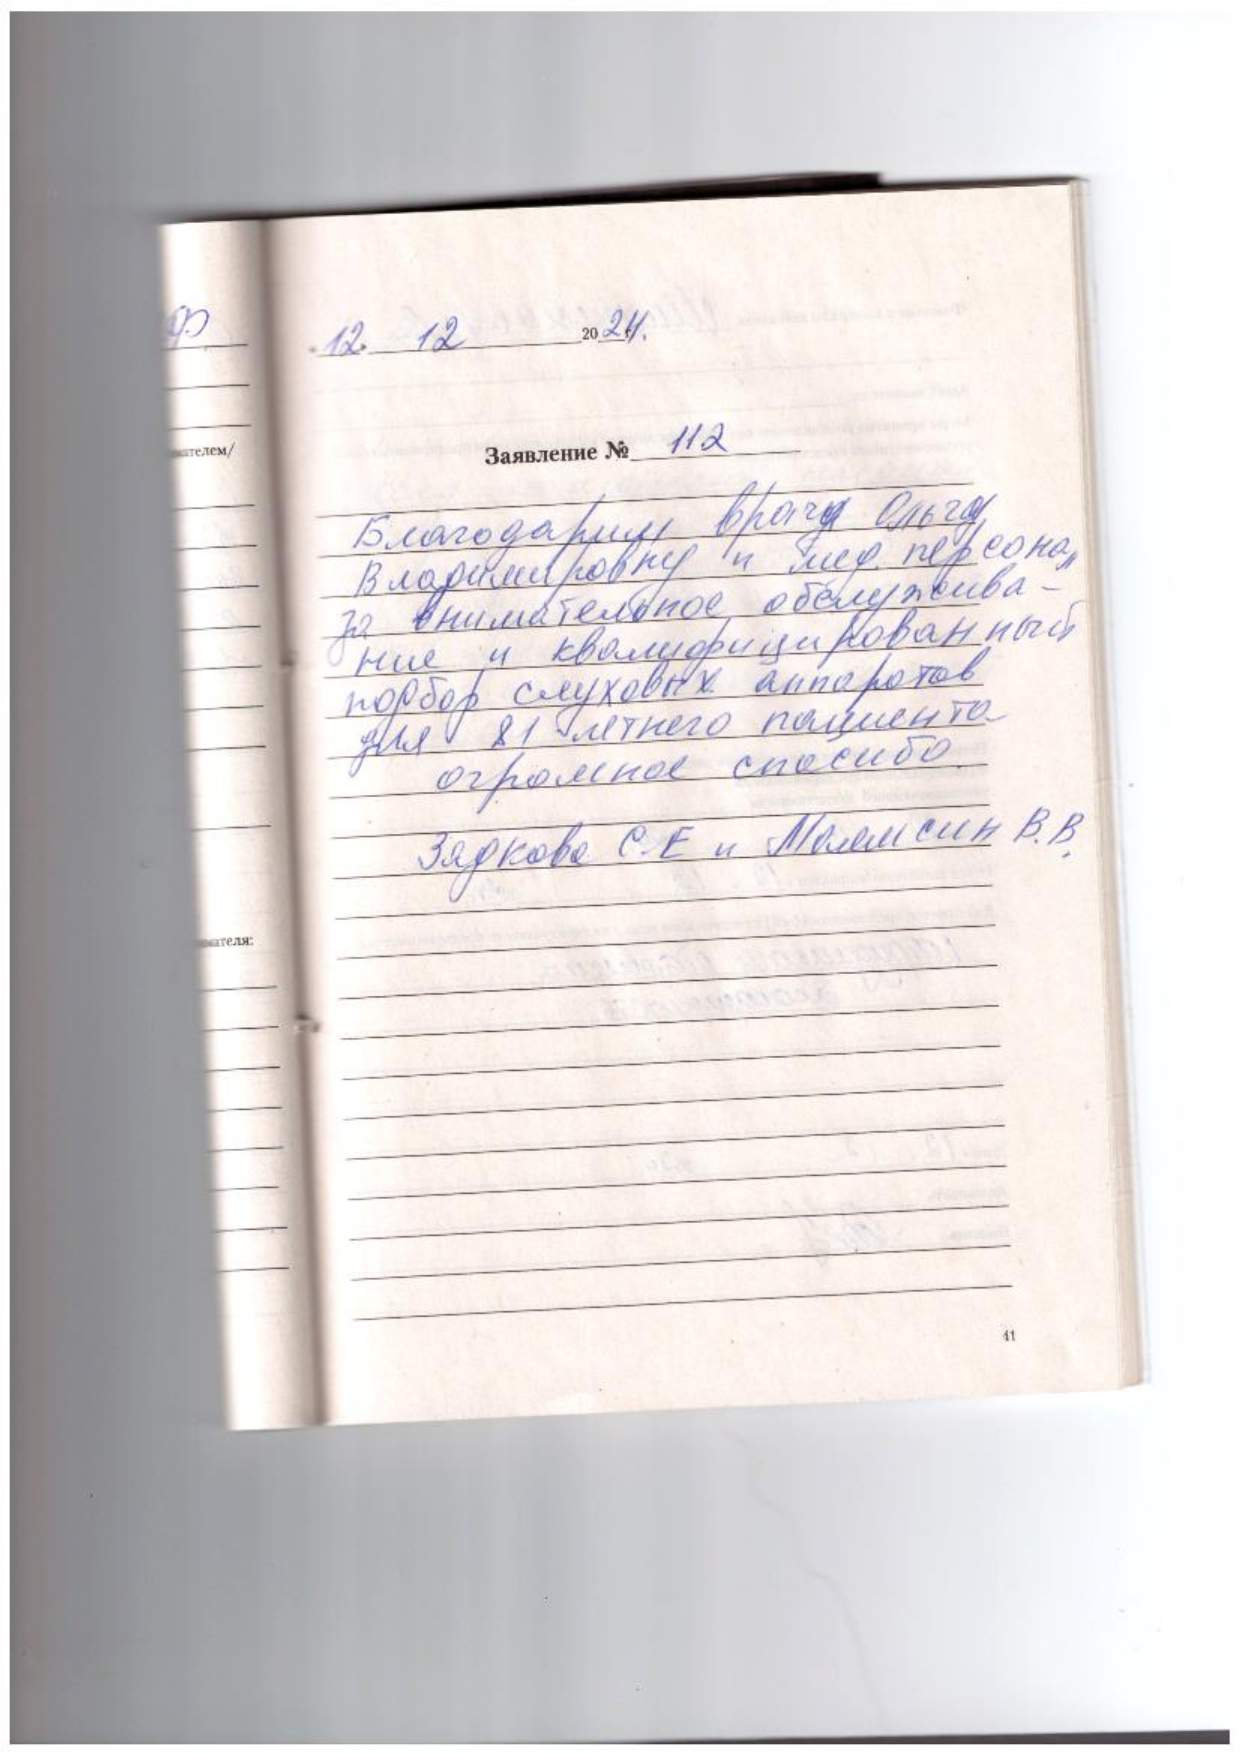 ф
ателем/
мателя:
"12" 12 2024г.
Заявление № 112
Благодарим врача Ольгу
Владимировну и мед. персонал
за внимательное обслужива-
ние и квалифицированный
подбор слуховых аппаратов
для 81 летнего пациента
огромное спасибо.
Зядкова С.Е и В.В.
41